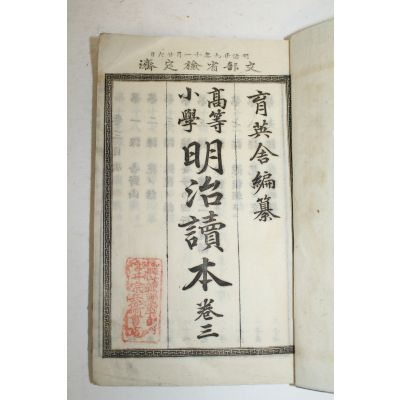 明治廿九年十一月廿六日
文部省檢定濟
育英舍編纂
高等
小學
明治讀本
卷三